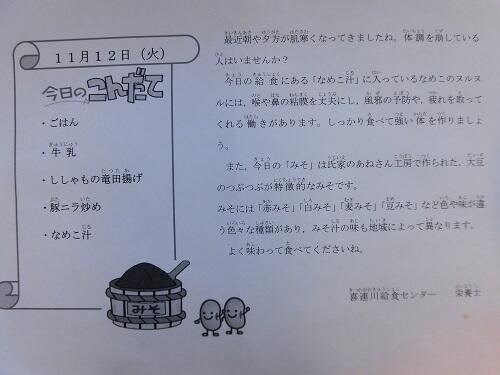 11月12日（火）
今日のこんだて
・ごはん
・牛乳
・ししゃもの竜田揚げ
・豚ニラ炒め
・なめこ汁
みそ
最近朝や夕方が肌寒くなってきましたね。体調を崩している
人はいませんか？
今日の給食にある「なめこ汁」に入っているなめこのヌルヌ
ルには、喉や鼻の粘膜を丈夫にし、風邪の予防や、疲れを取って
くれる働きがあります。しっかり食べて強い体を作りましょ
う。
また、今日の「みそ」は氏家のあねさん工房で作られた、大豆
のつぶつぶが特徴的なみそです。
みそには「赤みそ」「白みそ」「麦みそ」「豆みそ」など色や味が違
う色々な種類があり、みそ汁の味も地域によって異なります。
よく味わって食べてくださいね。
喜連川給食センター　栄養士